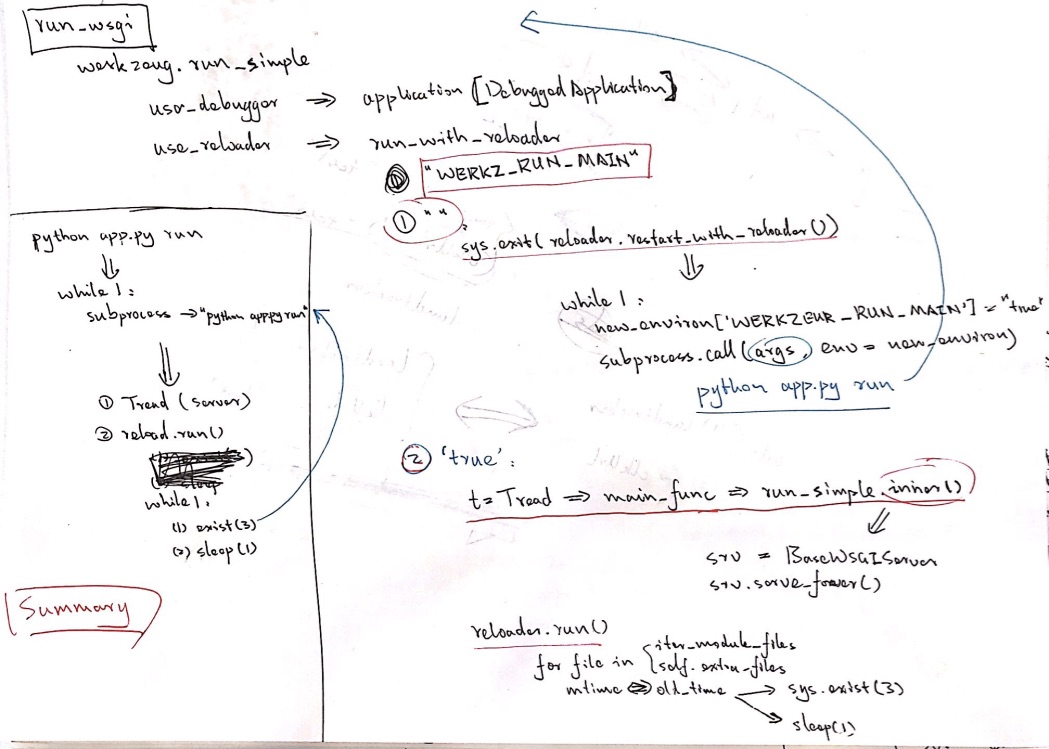 run_wsgi
werkzeug.run_simple
use_debugger ⇒ application [DebuggedApplication]
use_reloader ⇒ run_with_reloader
① "WERKZ_RUN_MAIN"
① " " :
sys.exit( reloader.restart_with_reloader())
⇓
while 1 :
new_environ['WERKZEUR_RUN_MAIN'] = "true"
subprocess.call( args, env = new_environ)
python app.py run
② 'true' :
t = Tread ⇒ main_func ⇒ run_simple.inner()
⇓
srv = BaseWSGIServer
srv.serve_forever()
reloader.run()
for file in { iter_module_files
self.extra_files
mtime ⇔ old_time → sys.exist(3)
→ sleep(1)
python app.py run
⇓
while 1 :
subprocess → "python app.py run"
⇓
① Tread (server)
② reload.run()
while 1 :
(1) exist(3)
(2) sleep(1)
Summary